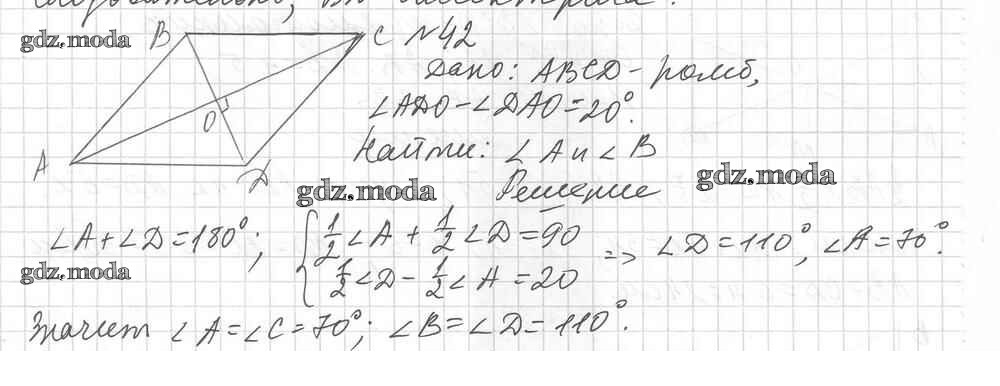 следовательно,
gdz.moda
B C №42
Дано: ABCD - ромб,
∠ADO - ∠DAO = 20°.
O
Найти: ∠A и ∠B
A D
gdz.moda Решение gdz.moda
∠A + ∠D = 180°; { 1/2 ∠A + 1/2 ∠D = 90
1/2 ∠D - 1/2 ∠A = 20 => ∠D = 110°, ∠A = 70°.
gdz.moda
Значит ∠A = ∠C = 70°; ∠B = ∠D = 110°.